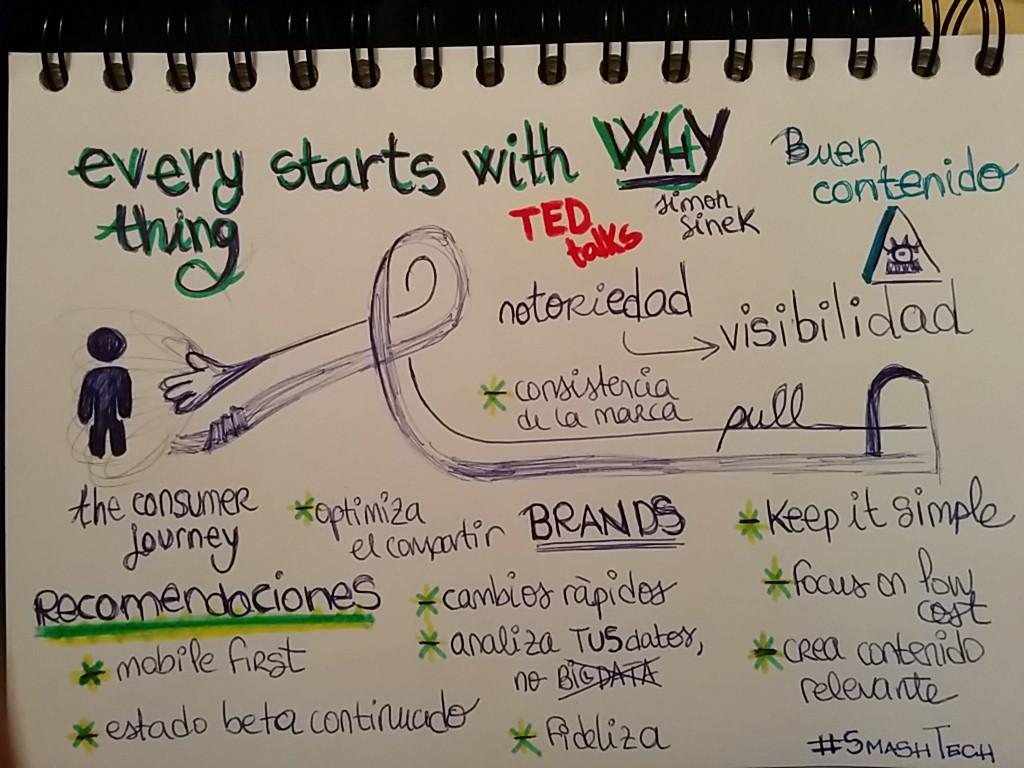 everything starts with WHY
TED talks
simon sinek
Buen
contenido
notoriedad
visibilidad
* consistencia
de la marca
pull
the consumer
journey
* optimiza
el compartir
BRANDS
* Keep it simple
* focus on low
cost
* crea contenido
relevante
Recomendaciones
* mobile first
* estado beta continuado
* cambios ràpidos
* analiza TUS datos,
no BIGDATA
* Fideliza
#SMASHTECH